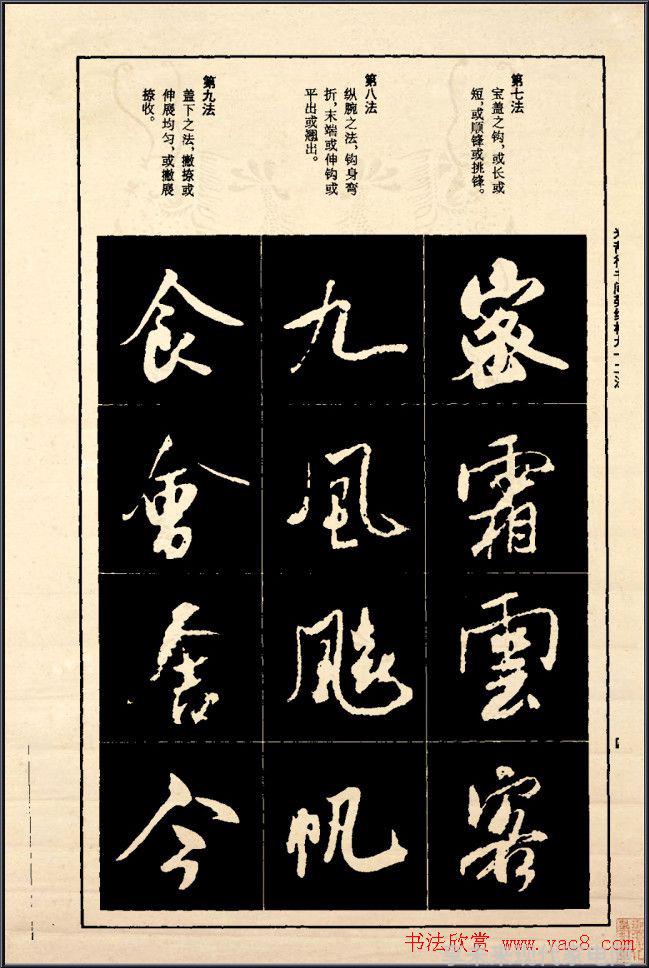 第七法
宝盖之钩，或长或
短，或顺锋或挑锋。
密
霜
雲
客
第八法
纵腕之法，钩身弯
折，末端或伸钩或
平出或翘出。
九
風
飚
帆
第九法
盖下之法，撇捺或
伸展均匀，或撇展
捺收。
食
會
舍
今
书法欣赏 www.yac8.com